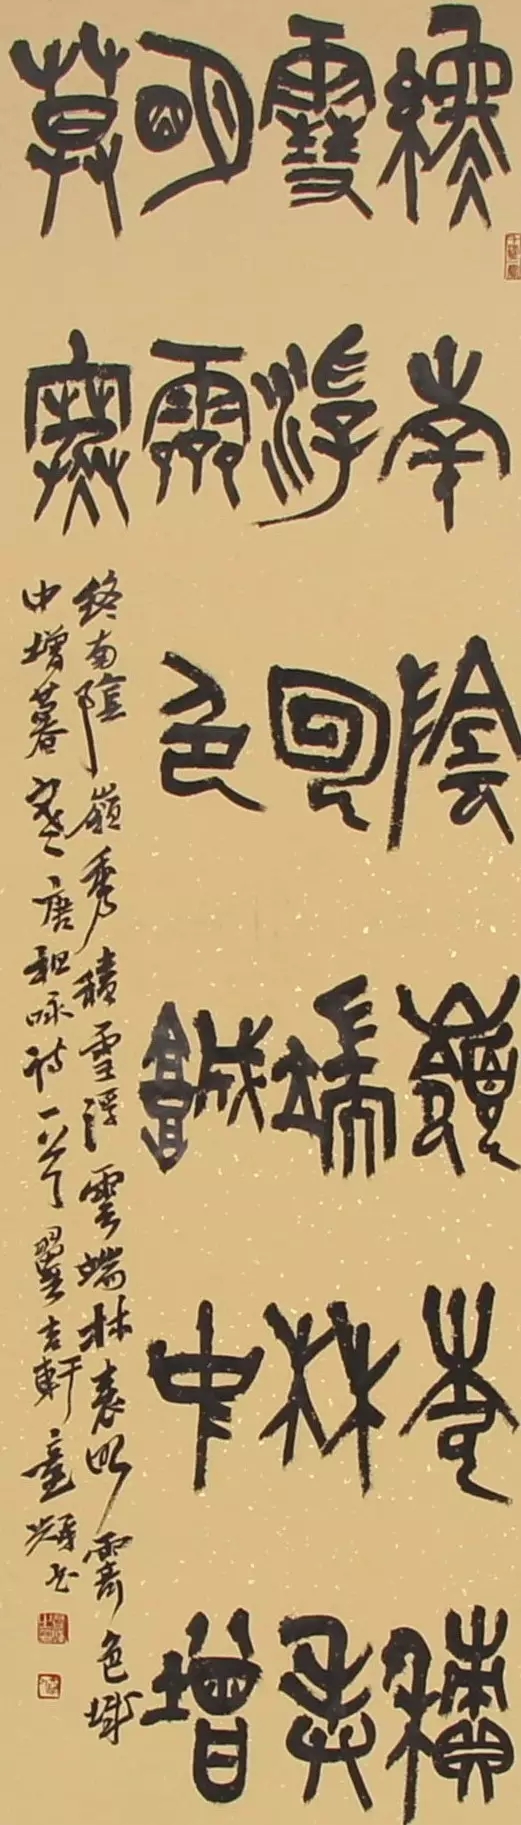 終南陰嶺秀積
雪浮云端林表
明霽色城中增
莫寒
終南陰嶺秀積雪浮雲端林表明霽色城
中增暮寒 唐祖咏詩一首 吉軒 童輝书